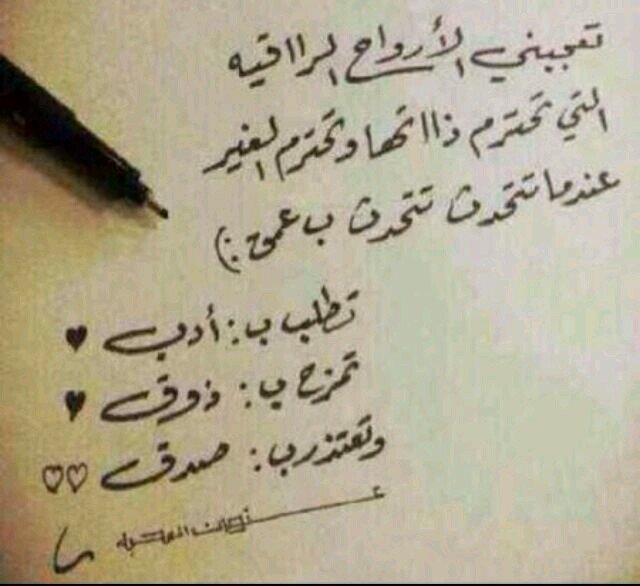 تعجبني الأرواح الرااقيه
التي تحترم ذااتها وتحترم الغير
عندما تتحدث تتحدث ب عمق :)
تطلب ب: أدب ♥
تمزح ب: ذوق ♥
وتعتذر ب: صدق ♡♡